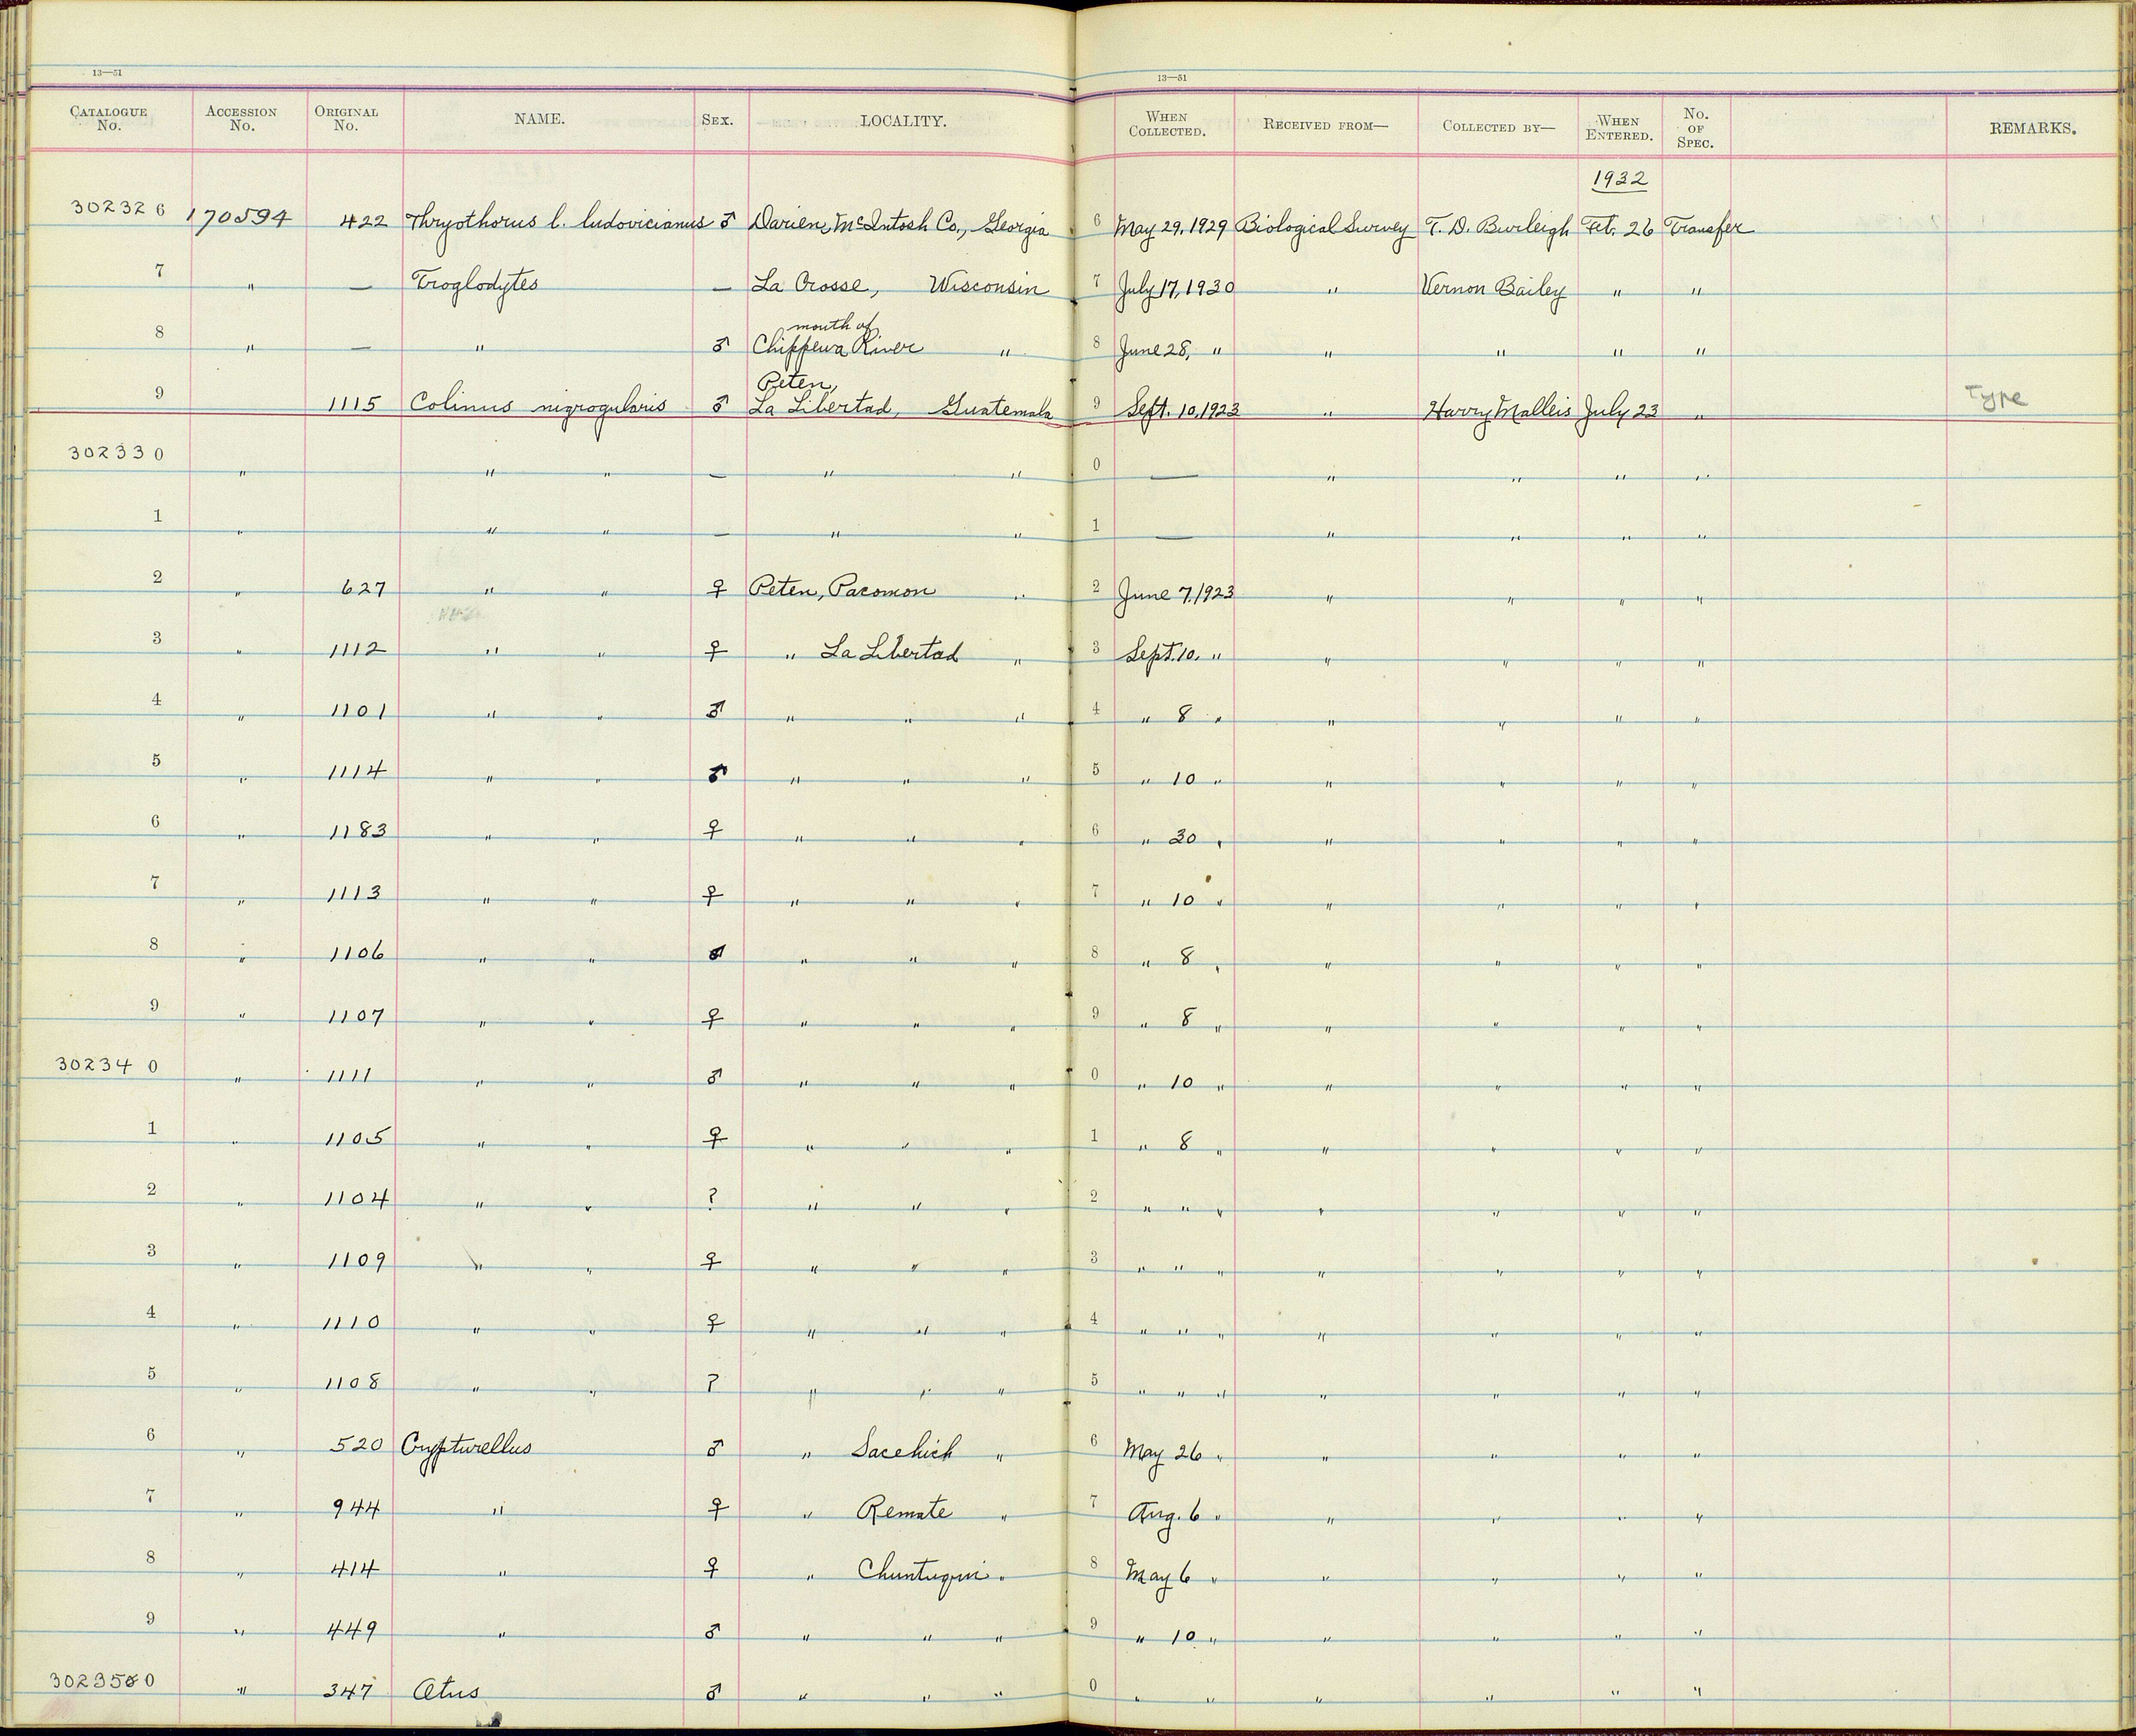 13—51 13—51
CATALOGUE No. ACCESSION No. ORIGINAL No. NAME. SEX. LOCALITY. WHEN COLLECTED. RECEIVED FROM— COLLECTED BY— WHEN ENTERED. No. OF SPEC. REMARKS.
1932
302326 170594 422 Thryothorus l. ludovicianus ♂ Darien, McIntosh Co., Georgia 6 May 29, 1929 Biological Survey T. D. Burleigh Feb. 26 Transfer
7 " — Troglodytes — La Crosse, Wisconsin 7 July 17, 1930 " Vernon Bailey " "
mouth of
8 " — " ♂ Chippewa River " 8 June 28, " " " " "
Peten,
9 1115 Colinus nigrogularis ♂ La Libertad, Guatemala 9 Sept. 10, 1923 " Harry Malleis July 23 " Type
302330 " " " — " " 0 — " " " "
1 " " " — " " 1 — " " " "
2 " 627 " " ♀ Peten, Pacomon " 2 June 7, 1923 " " " "
3 " 1112 " " ♀ " La Libertad " 3 Sept. 10, " " " " "
4 " 1101 " " ♂ " " " 4 " 8 " " " " "
5 " 1114 " " ♂ " " " 5 " 10 " " " " "
6 " 1183 " " ♀ " " " 6 " 30 " " " " "
7 " 1113 " " ♀ " " " 7 " 10 " " " " "
8 " 1106 " " ♂ " " " 8 " 8 " " " " "
9 " 1107 " " ♀ " " " 9 " 8 " " " " "
302340 " 1111 " " ♂ " " " 0 " 10 " " " " "
1 " 1105 " " ♀ " " " 1 " 8 " " " " "
2 " 1104 " " ? " " " 2 " " " " " " "
3 " 1109 " " ♀ " " " 3 " " " " " " "
4 " 1110 " " ♀ " " " 4 " " " " " " "
5 " 1108 " " ? " " " 5 " " " " " " "
6 " 520 Crypturellus ♂ " Sacchich " 6 May 26 " " " " "
7 " 944 " ♀ " Remate " 7 Aug. 6 " " " " "
8 " 414 " ♀ " Chuntuqui " 8 May 6 " " " " "
9 " 449 " ♂ " " " 9 " 10 " " " " "
302350 " 347 Otus ♂ " " " 0 " " " " " "